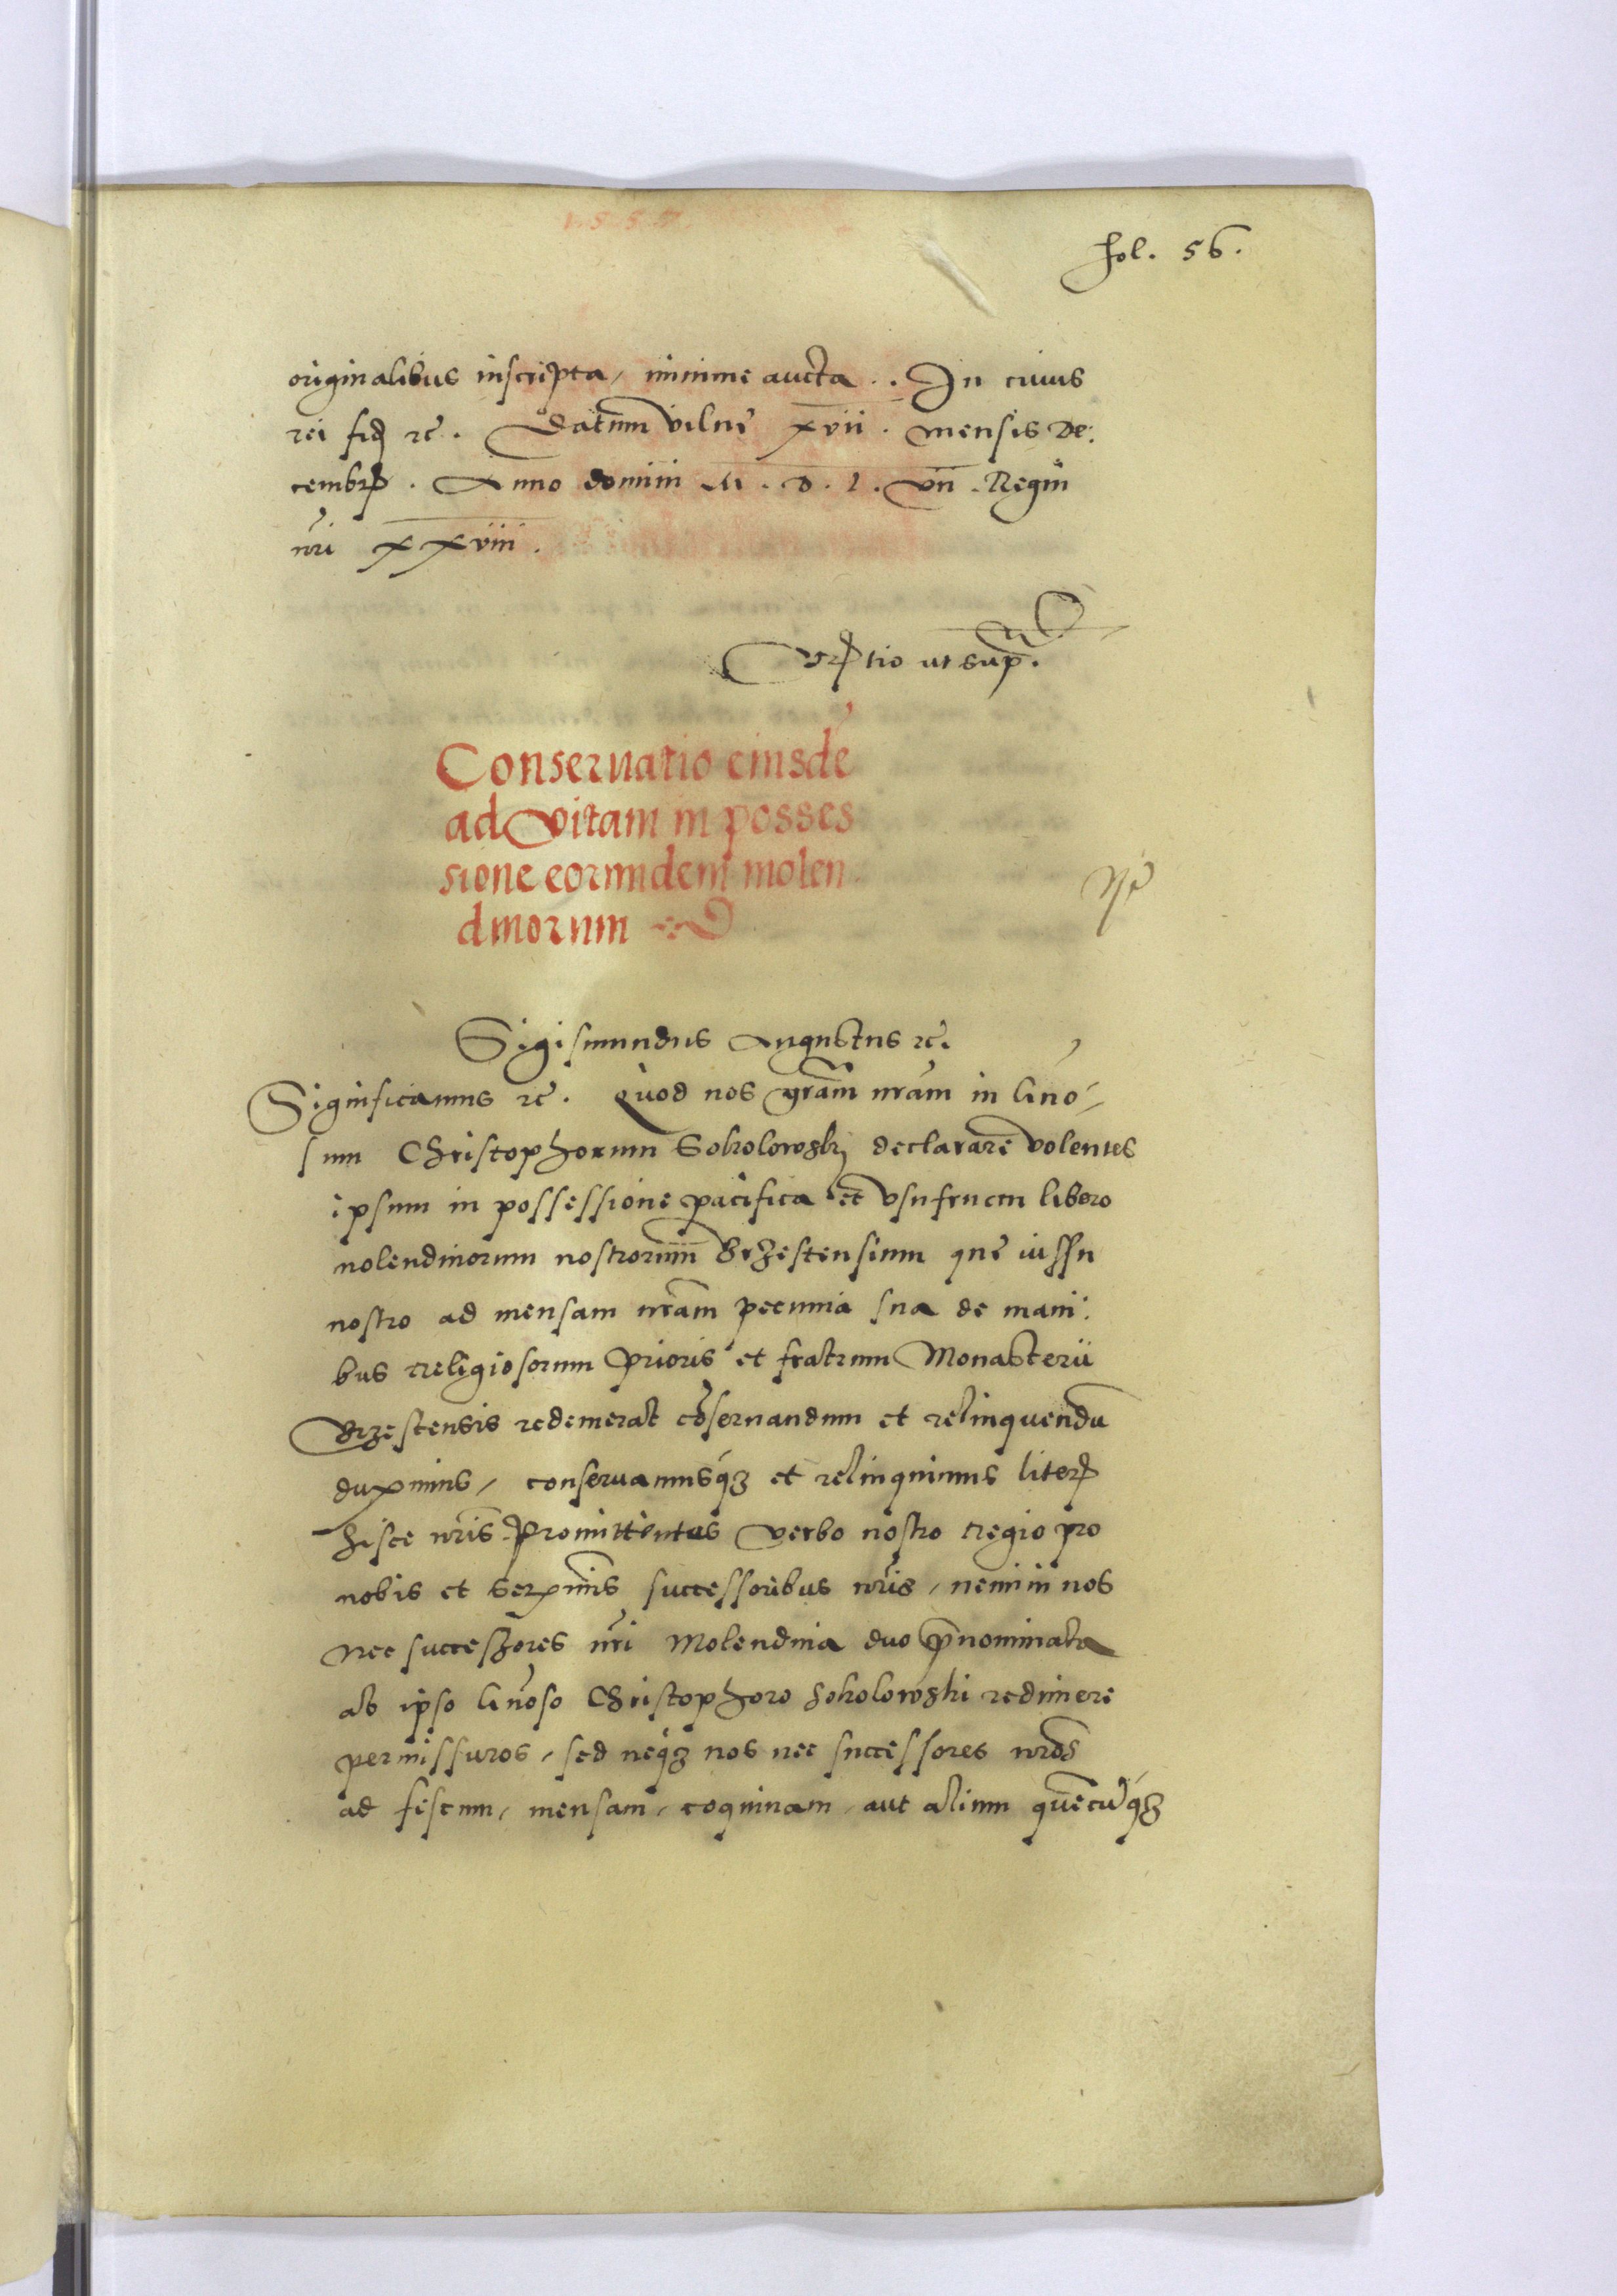 fol. 56.
originalibus inscripta, minime aucta.. In cuius
rei fidē rc̄. Datum Vilnę xvii. mensis De:
cembrꝭ. Anno domini M.D.L.vii. Regni
nr̄i xxviii.
ut supr.
Conseruatio eiusdē
ad vitam in posses
sione eorundem molen
dinorum
Sigismundus Augustus rc̄.
Significamus rc̄. Quod nos gr̄am nr̄am in Gn̄o-
sum Christophorum Sokolowskj declarare volentes
ipsum in possessione pacifica et vsufructu libero
molendinorum nostrorum Brzestensium que iussu
nostro ad mensam nr̄am pecunia sua de mani:
bus religiosorum Prioris et fratrum Monasterii
Brzestensis redemerat cōseruandum et relinquendū
duximus, conseruamusqꝫ et relinquimus literꝭ
hisce nr̄is. Promittentes verbo nostro regio pro
nobis et Serx̄mis successoribus nr̄is, nemini nos
nec successores nr̄i Molendina duo p̄nominata
ab ipso Gn̄oso Christophoro Sokolowski redimere
permissuros, sed neqꝫ nos nec successores nr̄os
ad fiscum, mensam, coquinam, aut alium quēcūqꝫ